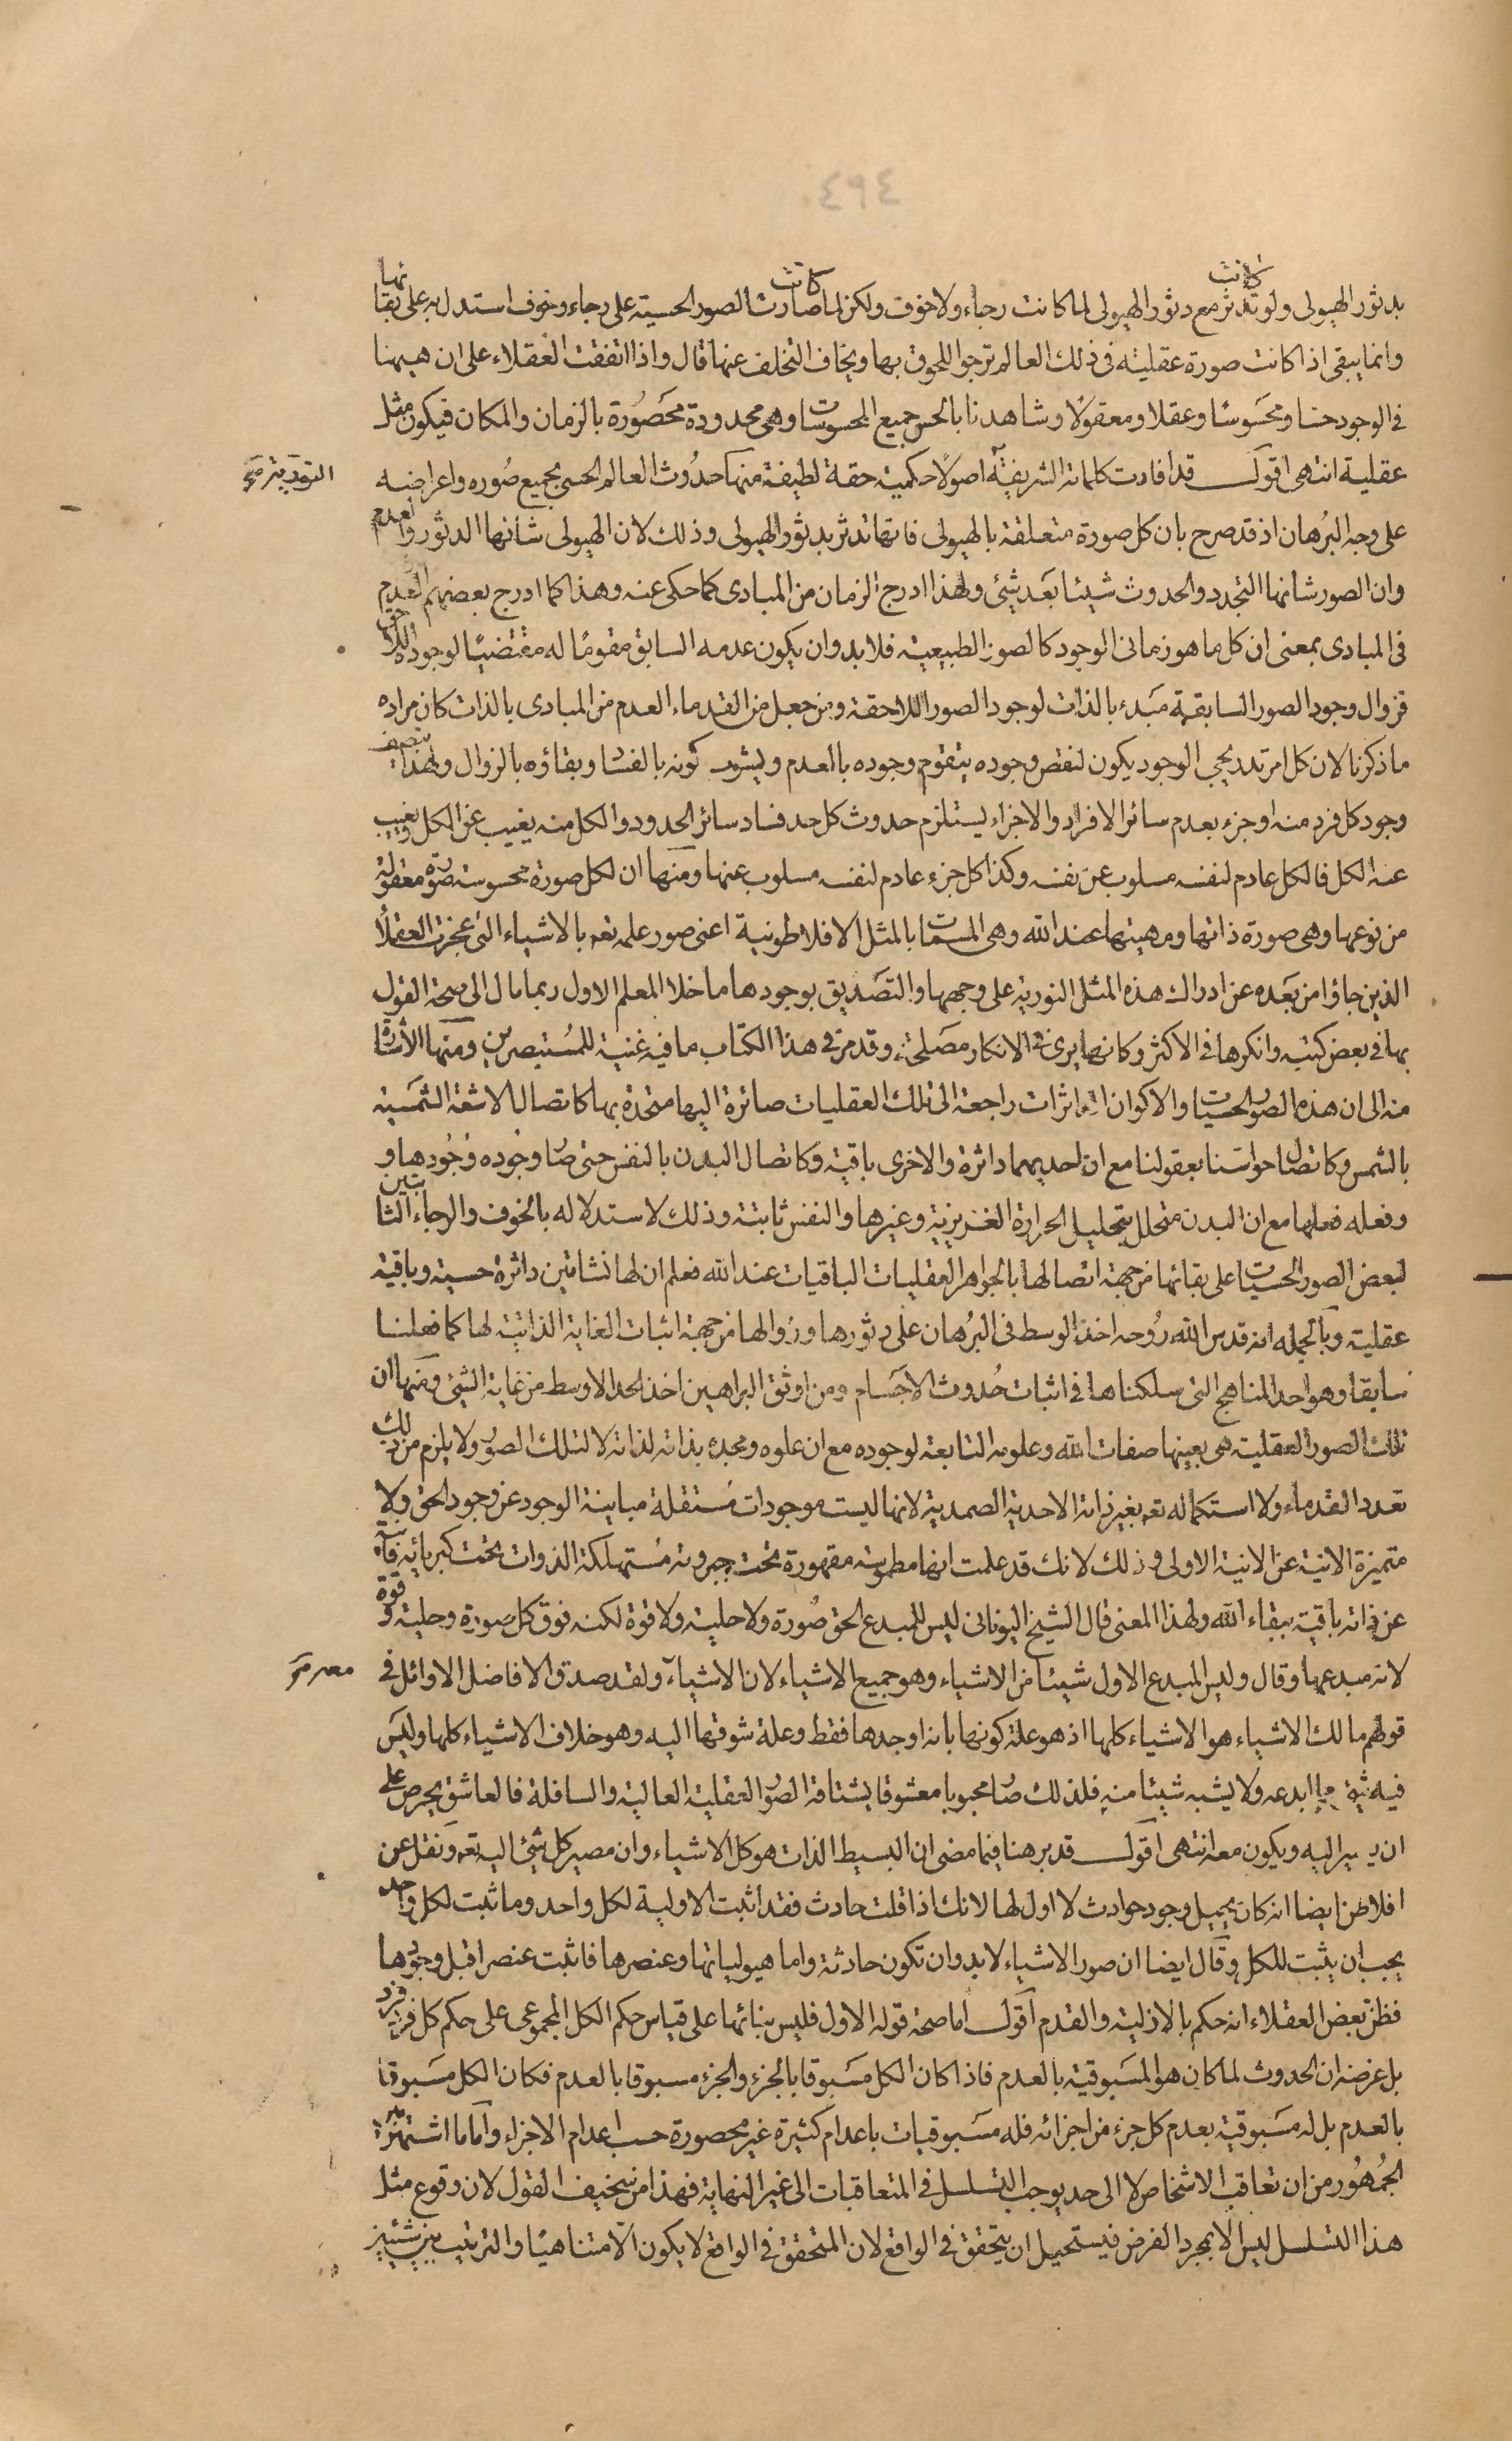 ٤٩٤
بدثور الهيولى ولو كانت تدثر مع دثور الهيولى لما كانت رجاء ولا خوف ولكن لما صارت كانت الصور الحسية على رجاء وخوف استدل به على بقائها
وانما يبقى اذا كانت صورة عقلية فى ذلك العالم ترجوا اللحوق بها ويخاف التخلف عنها قال واذا اتفقت العقلاء على ان هيهنا
فى الوجود حسا ومحسوسا وعقلا ومعقولا وشاهدنا بالحس جميع المحسوسات وهى محدودة محصورة بالزمان والمكان فيكون مثل
عقلية انتهى اقول قد افادت كلماته الشريفة اصولا حكمية حقة لطيفة منها حدوث العالم الحسى بجميع صوره واعراضه
على وجه البرهان اذ قد صرح بان كل صورة متعلقة بالهيولى فانها تدثر بدثور الهيولى وذلك لان الهيولى شانها الدثور والعدم
وان الصور شانها التجدد والحدوث شيئا بعد شئ ولهذا ادرج الزمان من المبادى كما حكى عنه وهذا كما ادرج بعضهم العدم
فى المبادى بمعنى ان كل ما هو زمانى الوجود كالصور الطبيعية فلا بد وان يكون عدمه السابق مقوما له مقتضيا لوجوده اللاحق
فزوال وجود الصور السابقة مبدء بالذات لوجود الصور اللاحقة ومن جعل من القدماء العدم من المبادى بالذات كان مراده
ما ذكرنا لان كل امر تدريجى الوجود يكون لنقص وجوده يتقوم وجوده بالعدم ويشوب كونه بالفساد وبقاؤه بالزوال ولهذا يتصف
وجود كل فرد منه او جزء بعدم سائر الافراد والاجزاء يستلزم حدوث كل حد فساد سائر الحدود والكل منه يغيب عن الكل ويغيب
عنه الكل فالكل عادم لنفسه مسلوب عن نفسه وكذا كل جزء عادم لنفسه مسلوب عنها ومنها ان لكل صورة محسوسة صورة معقولة
من نوعها وهى صورة ذاتها ومهيتها عند الله وهى المسمات بالمثل الافلاطونية اعنى صور علمه تعه بالاشياء التى عجزت العقلاء
الذين جاؤا من بعده عن ادراك هذه المثل النورية على وجهها والتصديق بوجودها ما خلا المعلم الاول ربما مال الى صحة القول
بها فى بعض كتبه وانكرها فى الاكثر وكانه يرى فى الانكار مصلحة وقد مر فى هذا الكتاب ما فيه غنية للمستبصرين ومنها الاشارة
منه الى ان هذه الصور الحسيات والاكوان الداثرات راجعة الى تلك العقليات صائرة اليها متحدة بها كاتصال الاشعة الشمسية
بالشمس وكاتصال حواسنا بعقولنا مع ان احديهما داثرة والاخرى باقية وكاتصال البدن بالنفس حتى صار وجوده وجودها و
وفعله فعلها مع ان البدن متحلل بتحليل الحرارة الغريزية وغيرها والنفس ثابتة وذلك لاستدلاله بالخوف والرجاء الثابتين
لبعض الصور الحسيات على بقائها من جهة اتصالها بالجواهر العقليات الباقيات عند الله فعلم ان لها نشاتين داثرة حسية وباقية
عقلية وبالجمله انه قدس الله روحه اخذ الوسط فى البرهان على دثورها وزوالها من جهة اثبات الغاية الذاتية لها كما فعلنا
سابقا وهو احد المناهج التى سلكناها فى اثبات حدوث الاجسام ومن اوثق البراهين اخذ الحد الاوسط من غاية الشئ ومنها ان
تلك الصور العقلية هى بعينها صفات الله وعلومه التابعة لوجوده مع ان علوه ومجده بذاته لذاته لا لتلك الصور ولا يلزم من ذلك
تعدد القدماء ولا استكماله تعه بغير ذاته الاحدية الصمدية لانها ليست موجودات مستقلة مباينة الوجود عن وجود الحق ولا
متميزة الانية عن الانية الاولى وذلك لانك قد علمت انها مطموسة مقهورة تحت جبروته مستهلكة الذوات تحت كبريائه فانية
عن ذاته باقية ببقاء الله ولهذا المعنى قال الشيخ اليونانى ليس للمبدع الحق صورة ولا حلية ولا قوة لكنه فوق كل صورة وحلية وقوة
لانه مبدعها وقال وليس المبدع الاول شيئا من الاشياء وهو جميع الاشياء لان الاشياء ولقد صدق الافاضل الاوائل فى
قولهم مالك الاشياء هو الاشياء كلها اذ هو علة كونها بانه اوجدها فقط وعلة شوقها اليه وهو خلاف الاشياء كلها وليس
فيه شئ مما ابدعه ولا يشبه شيئا منه فلذلك صار محبوبا معشوقا يشتاقه الصور العقلية العالية والسافلة فالعاشق يحرص على
ان يسير اليه ويكون معه انتهى اقول قد برهنا فيما مضى ان البسيط الذات هو كل الاشياء وان مصير كل شئ اليه تعه ونقل عن
افلاطن ايضا انه كان يحيل وجود حوادث لا اول لها لانك اذا قلت حادث فقد اثبت الاولية لكل واحد وما ثبت لكل واحد
يجب ان يثبت للكل وقال ايضا ان صور الاشياء لا بد وان تكون حادثة واما هيولياتها وعنصرها فاثبت عنصرا قبل وجودها
فظن بعض العقلاء انه حكم بالازلية والقدم اقول اما صحة قوله الاول فليس بنائها على قياس حكم الكل المجموعى على حكم كل فرد فرد
بل غرضه ان الحدوث لما كان هو المسبوقية بالعدم فاذا كان الكل مسبوقا بالجزء والجزء مسبوقا بالعدم فكان الكل مسبوقا
بالعدم بل له مسبوقية بعدم كل جزء من اجزائه فله مسبوقيات باعدام كثيرة غير محصورة حسب اعدام الاجزاء واما ما اشتهر
الجمهور من ان تعاقب الاشخاص لا الى حد يوجب التسلسل فى المتعاقبات الى غير النهاية فهذا من سخيف القول لان وقوع مثل
هذا التسلسل ليس الا بمجرد الفرض فيستحيل ان يتحقق فى الواقع لان المتحقق فى الواقع لا يكون الا متناهيا والترتيب بين شيئين